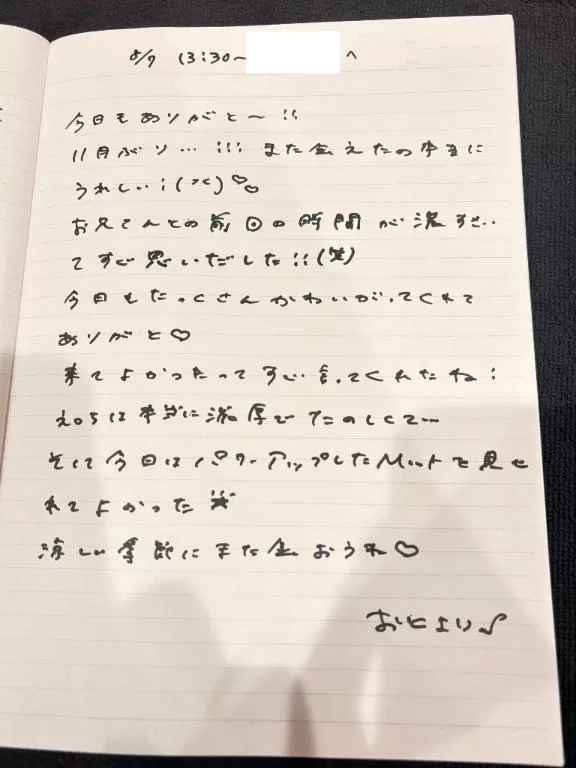 8/7 13:30〜 へ
今日もありがと〜!!
11月ぶり…!!! また会えたの本当に
うれしい!(^^)♡♡
お兄さんとの前回の時間が濃すぎ..
てすぐ思いだした!!(笑)
今日もたっくさんかわいがってくれて
ありがと♡
来てよかったってすぐ言ってくれたね!
は本当に濃厚でたのしくて…
そして今日はパワーアップしたMットも見せ
れてよかった
涼しい季節にまた会おうね♡
より♪